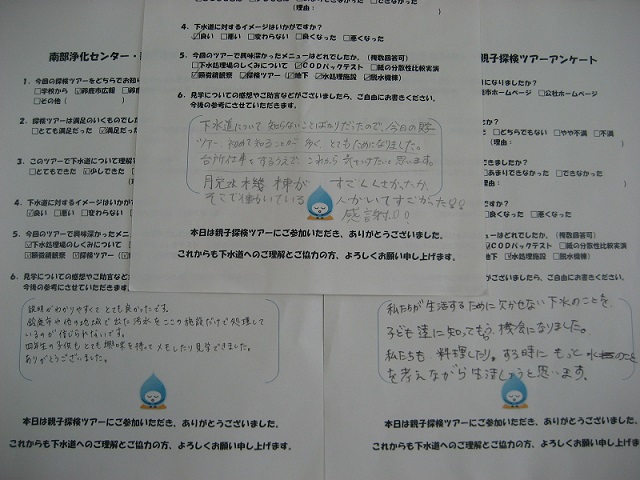 （理由： ）
4. 下水道に対するイメージはいかがですか？
☑良い □悪い □変わらない □良くなった □悪くなった
5. 今回のツアーで興味深かったメニューはどれでしたか。（複数回答可）
□下水処理場のしくみについて ☑CODパックテスト □紙の分散性比較実演
☑顕微鏡観察 ☑探検ツアー ☑地下 ☑水処理施設 ☑脱水機棟）
6. 見学についての感想やご助言などがございましたら、ご自由にお書きください。
今後の参考にさせていただきます。
下水道について知らないことばかりだったので、今日の
ツアー、初めて知ることが多く、とてもためになりました。
これから気をつけたいと思います。
脱水機棟が すごくくさかった。
そこで働いている 人がいてすごかった!!
感謝!!
本日は親子探検ツアーにご参加いただき、ありがとうございました。
これからも下水道へのご理解とご協力の方、よろしくお願い申し上げます。
南部浄化センター・
1. 今回の探検ツアーをどちらでお知
□学校から ☑鈴鹿市広報
□その他（
2. 探検ツアーは満足のいくものでした
□とても満足だった ☑満足だった
3. このツアーで下水道について理解
□とてもできた ☑少しできた
4. 下水道に対するイメージはいかが
☑良い □悪い □変わらない
5. 今回のツアーで興味深かったメニ
☑下水処理場のしくみについて
☑顕微鏡観察 ☑探検ツアー
6. 見学についての感想やご助言などが
今後の参考にさせていただきます。
説明がわかりやすくてとても良かったです。
鈴鹿市や他の地域で出た汚水をここの施設だけで処理して
いるのが信じられないです。
四年生の子供もとても興味を持ってメモしたり見学できました。
ありがとうございました。
本日は親子探検ツアーにご参加いただき、ありがとうございました。
これからも下水道へのご理解とご協力の方、よろしくお願い申し上げます。
親子探検ツアーアンケート
になりましたか？
市ホームページ □公社ホームページ
□どちらでもない □やや不満 □不満
（理由： ）
できましたか？
□あまりできなかった □できなかった
（理由： ）
すか？
□良くなった □悪くなった
ューはどれでしたか。（複数回答可）
☑CODパックテスト □紙の分散性比較実演
地下 ☑水処理施設 □脱水機棟）
ございましたら、ご自由にお書きください。
私たちが生活するために欠かせない下水のことを、
子ども達に知ってもらう機会になりました。
私たちも料理したり。する時にもっと水のこと
を考えながら生活しようと思います。
本日は親子探検ツアーにご参加いただき、ありがとうございました。
これからも下水道へのご理解とご協力の方、よろしくお願い申し上げます。